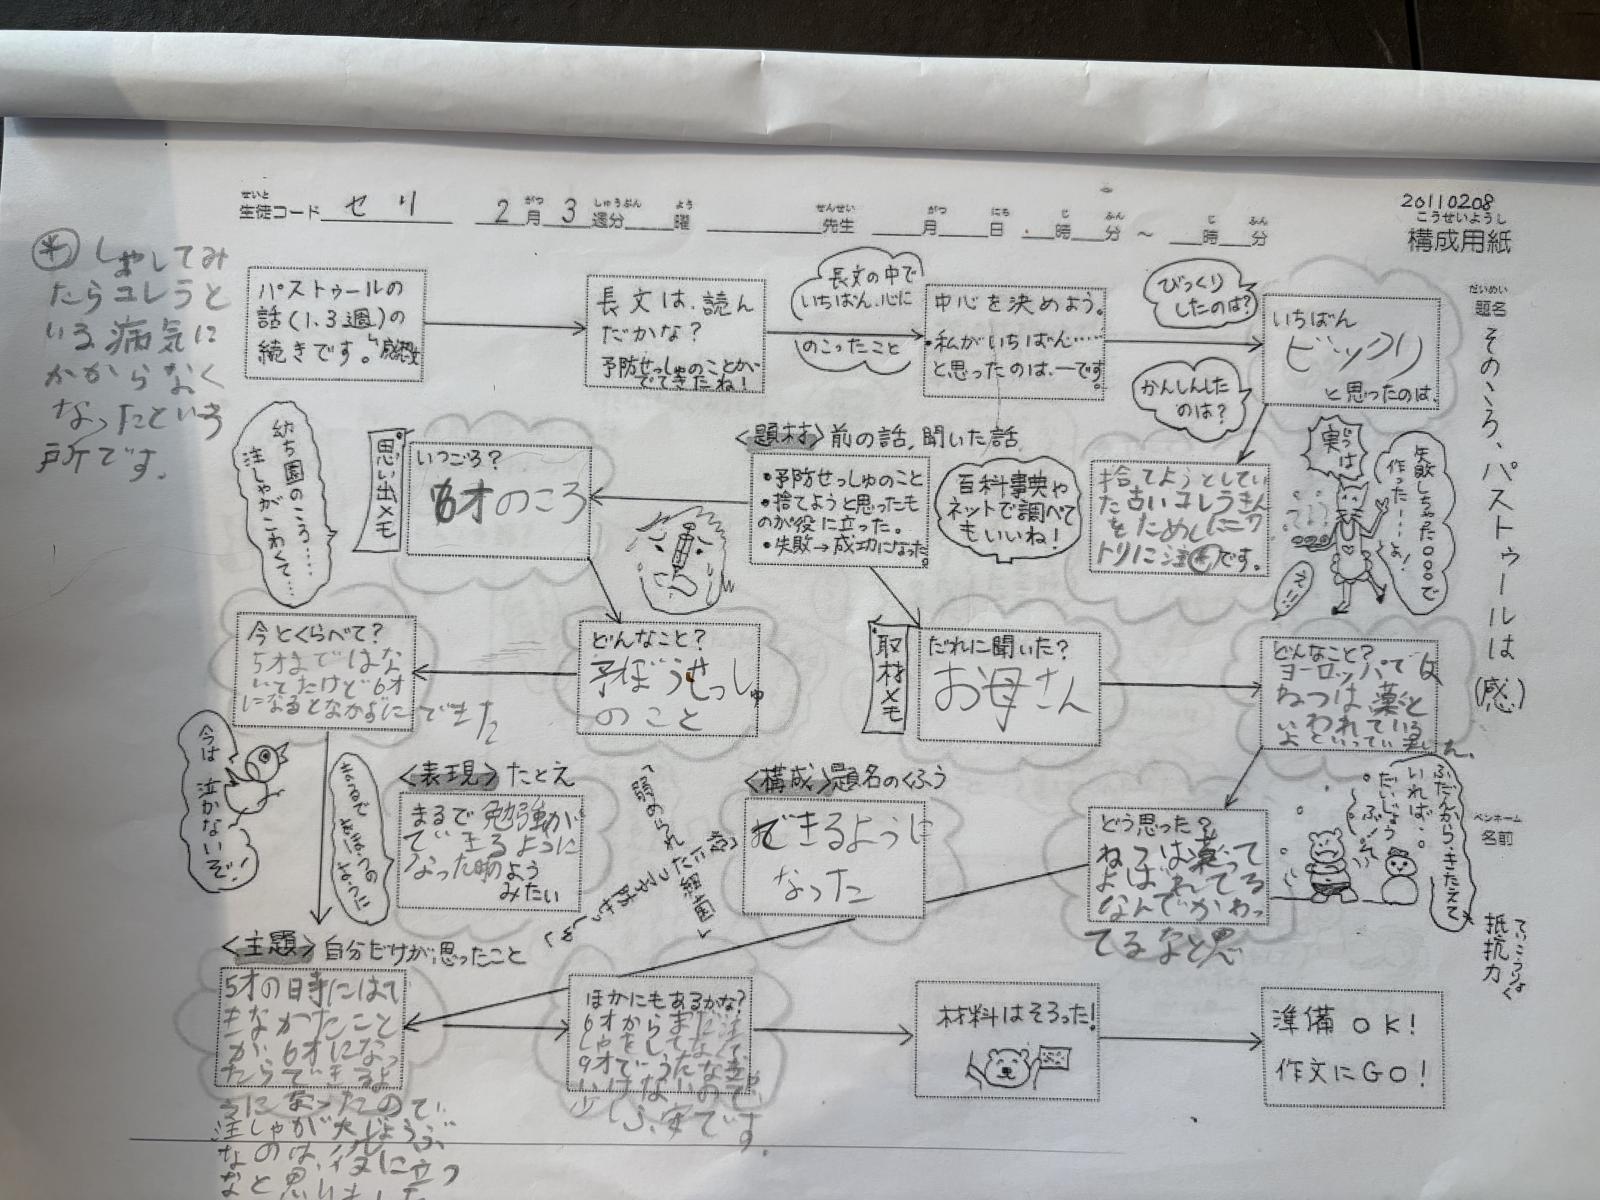 20110208
こうせいようし
構成用紙
せいと
生徒コード セリ 2月3週分 曜 先生 月 日 時 分 ～ 時 分
だいめい
題名
そのころ、パストゥールは(感)
ペンネーム
名前
パストゥールの
話(1.3週)の
続きです。
長文は、読ん
だかな?
予防せっしゅのことが
でてきたね!
長文の中で
いちばん、心に
のこったこと
中心を決めよう。
・私がいちばん……
と思ったのは、ーです。
びっくり
したのは?
かんしんした
のは?
いちばん
ビックリ
と思ったのは、
捨てようとしてい
た古いコレラきん
をためしにニワ
トリに注㊉です。
しゃしてみ
たらコレラと
いる病気に
かからなく
なったという
所です.
実は
失敗しちゃった〇〇〇で
作ったー…よ!
え!!
<題材>前の話,聞いた話
・予防せっしゅのこと
・捨てようと思ったも
のが役に立った。
・失敗→成功になった。
百科事典や
ネットで調べて
もいいね!
思い出メモ
いつごろ?
6才のころ
幼ち園のころ……
注しゃがこわくて…
どんなこと?
予ぼうせっしゅ
のこと
今とくらべて?
5才まではな
いてたけど6才
になるとなかずに できた
今は泣かないぞ!
取材メモ
だれに聞いた?
お母さん
どんなこと?
ヨーロッパでは
ねつは薬と
いわれている
よといってい
どう思った?
ねつは薬って
よばれてる
なんでかわっ
てるなと思
ふだんから、きたえて
いれば…
だいじょう
ぶ!
ていこうりょく
抵抗力
<表現>たとえ
まるで勉強が
できるように
なった時のよう
みたい
<構成>題名のくふう
できるように
なった
<主題>自分だけが思ったこと
5才の日寺にはで
きなかたこと
が、6才になっ
たらできるよ
うになったので、
注しゃが大じょうぶ
なのは、役に立つ
なと思いました
ほかにもあるかな?
6才からまだ注
しゃをしてなくて、
9才でうたなきゃ
いけないので、
少しふ安です。
材料はそろった!
準備OK!
作文にGO!